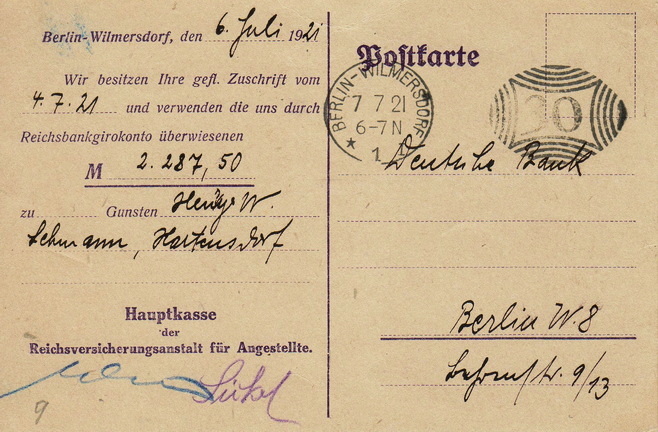 Berlin-Wilmersdorf, den 6. Juli 1921
Wir besitzen Ihre gefl. Zuschrift vom
4.7.21 und verwenden die uns durch
Reichsbankgirokonto überwiesenen
M 2.287,50
zu Gunsten W.
Lehmann, Hartensdorf
Hauptkasse
der
Reichsversicherungsanstalt für Angestellte.
9
Postkarte
BERLIN-WILMERSDORF
7 7 21
6-7 N
* 1
30
Deutsche Bank
Berlin W. 8
Behrenstr. 9/13